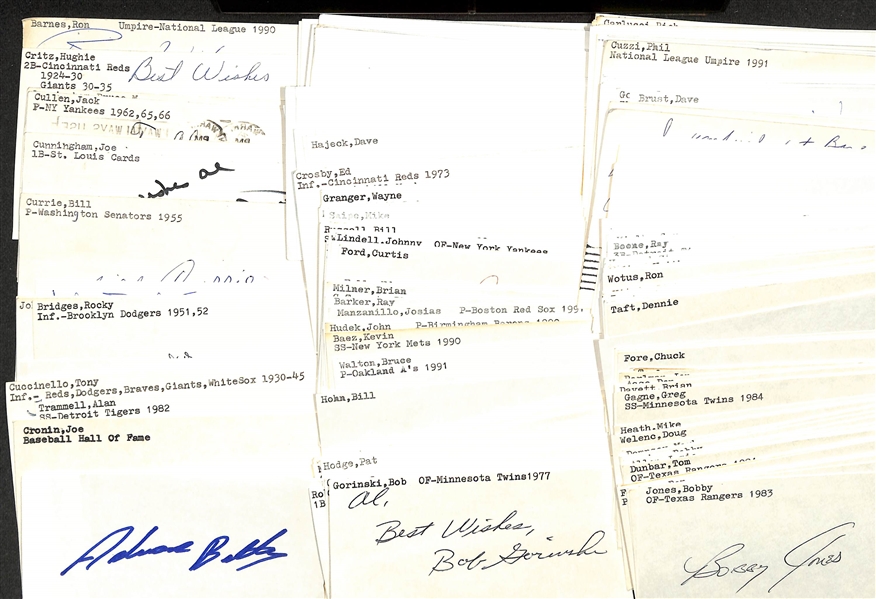 Barnes,Ron Umpire-National League 1990
Critz,Hughie
2B-Cincinnati Reds
1924-30
Giants 30-35
Best Wishes
Cullen,Jack
P-NY Yankees 1962,65,66
Cunningham,Joe
1B-St. Louis Cards
Al
Currie,Bill
P-Washington Senators 1955
Jo
Bridges,Rocky
Inf.-Brooklyn Dodgers 1951,52
Cuccinello,Tony
Inf.- Reds,Dodgers,Braves,Giants,WhiteSox 1930-45
Trammell,Alan
SS-Detroit Tigers 1982
Cronin,Joe
Baseball Hall Of Fame
Hajeck,Dave
Crosby,Ed
Inf.-Cincinnati Reds 1973
Granger,Wayne
Russell,Bill
Lindell,Johnny OF-New York Yankees
Ford,Curtis
Milner,Brian
Barker,Ray
Manzanillo,Josias P-Boston Red Sox 199
Hudek,John P-Birmingham Barons 1990
Baez,Kevin
SS-New York Mets 1990
Walton,Bruce
P-Oakland A's 1991
Hohn,Bill
Hodge,Pat
Ro
1B
Gorinski,Bob OF-Minnesota Twins1977
Al,
Best Wishes,
Bob Gorinski
Cuzzi,Phil
National League Umpire 1991
Brust,Dave
Boone,Ray
Wotus,Ron
Taft,Dennie
Fore,Chuck
Gagne,Greg
SS-Minnesota Twins 1984
Heath,Mike
Welenc,Doug
Dunbar,Tom
OF-Texas Rangers
Jones,Bobby
OF-Texas Rangers 1983
Bobby Jones